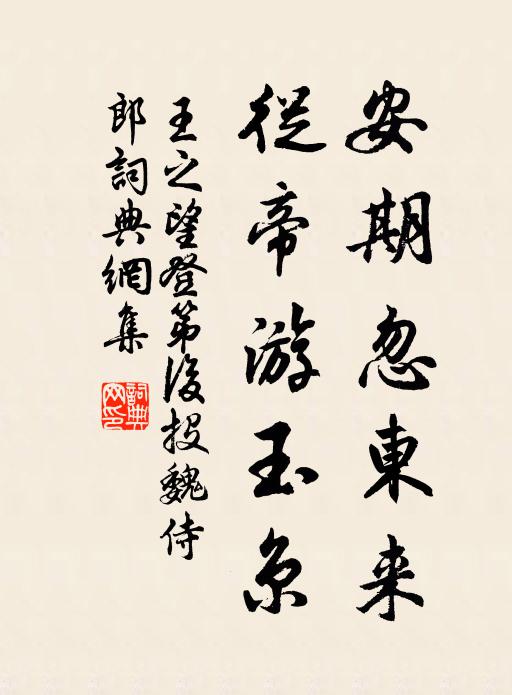 安期忽東来
從帝游玉京
王之望登第後投魏侍
郎詞典網集
詞典
网印